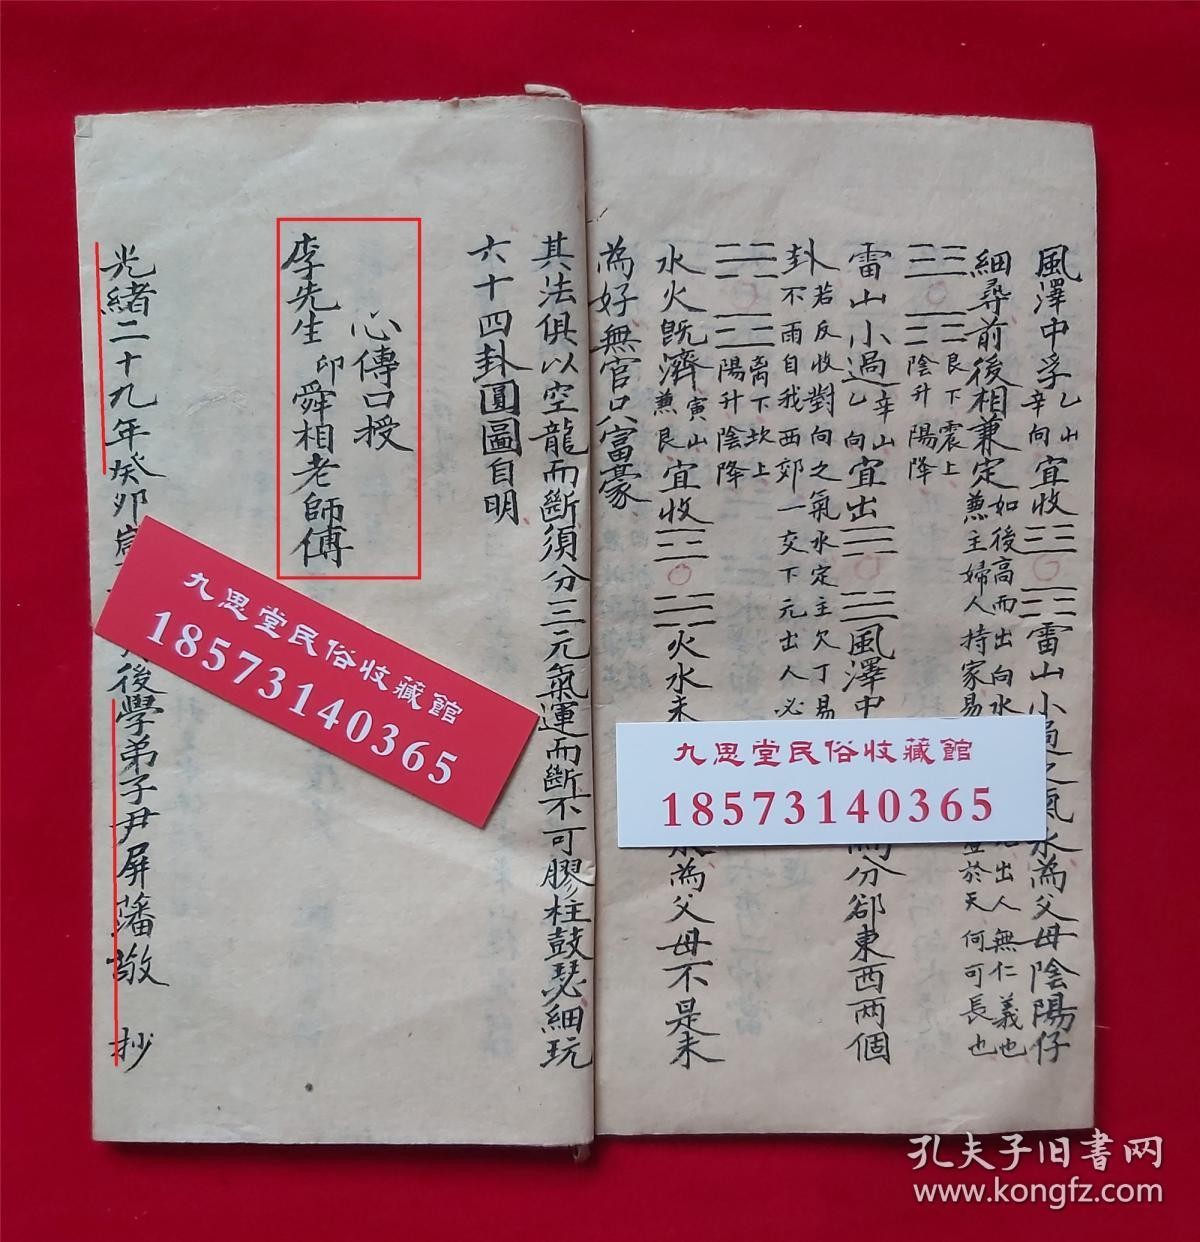 風澤中孚 乙山辛向 宜收 雷山小過之氣水為父母陰陽仔
細尋前後相兼定 如後高而出向水 出人無仁義也
兼主婦人持家易 於天何可長也
艮下震上
陰升陽降
雷山小過 辛山乙向 宜出 風澤中 分郤東西兩個
卦 若反收對向之氣水定主欠丁易
不雨自我西郊一交下元出人必
離下坎上
陽升陰降
水火既濟 寅山兼艮 宜收 火水未 為父母不是未
為好無官只富豪
其法俱以空龍而斷須分三元氣運而斷不可膠柱鼓瑟細玩
六十四卦圓圖自明
心傳口授
李先生印舜相老師傅
光緒二十九年癸卯歲 後學弟子尹屏藩敬抄
九思堂民俗收藏館
18573140365
九思堂民俗收藏館
18573140365
孔夫子旧书网
www.kongfz.com